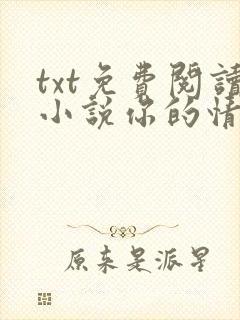 txt免費閱讀
小說你的情
原來是派星